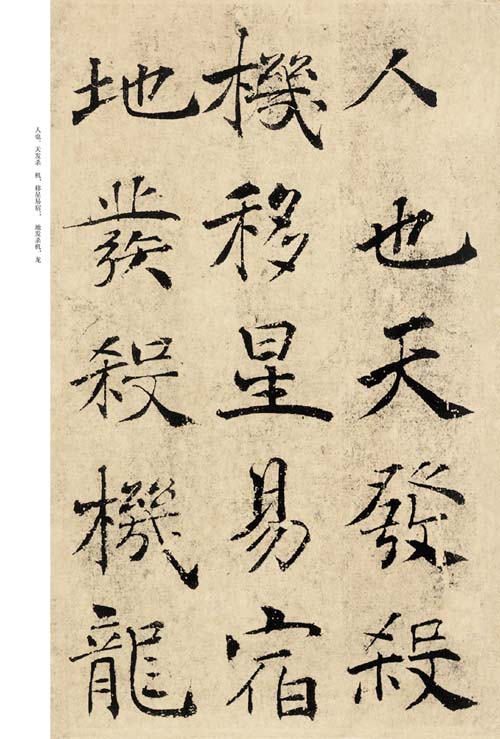 人也天發殺
機移星易宿
地發殺機龍
人也。天发杀 机，移星易宿； 地发杀机，龙